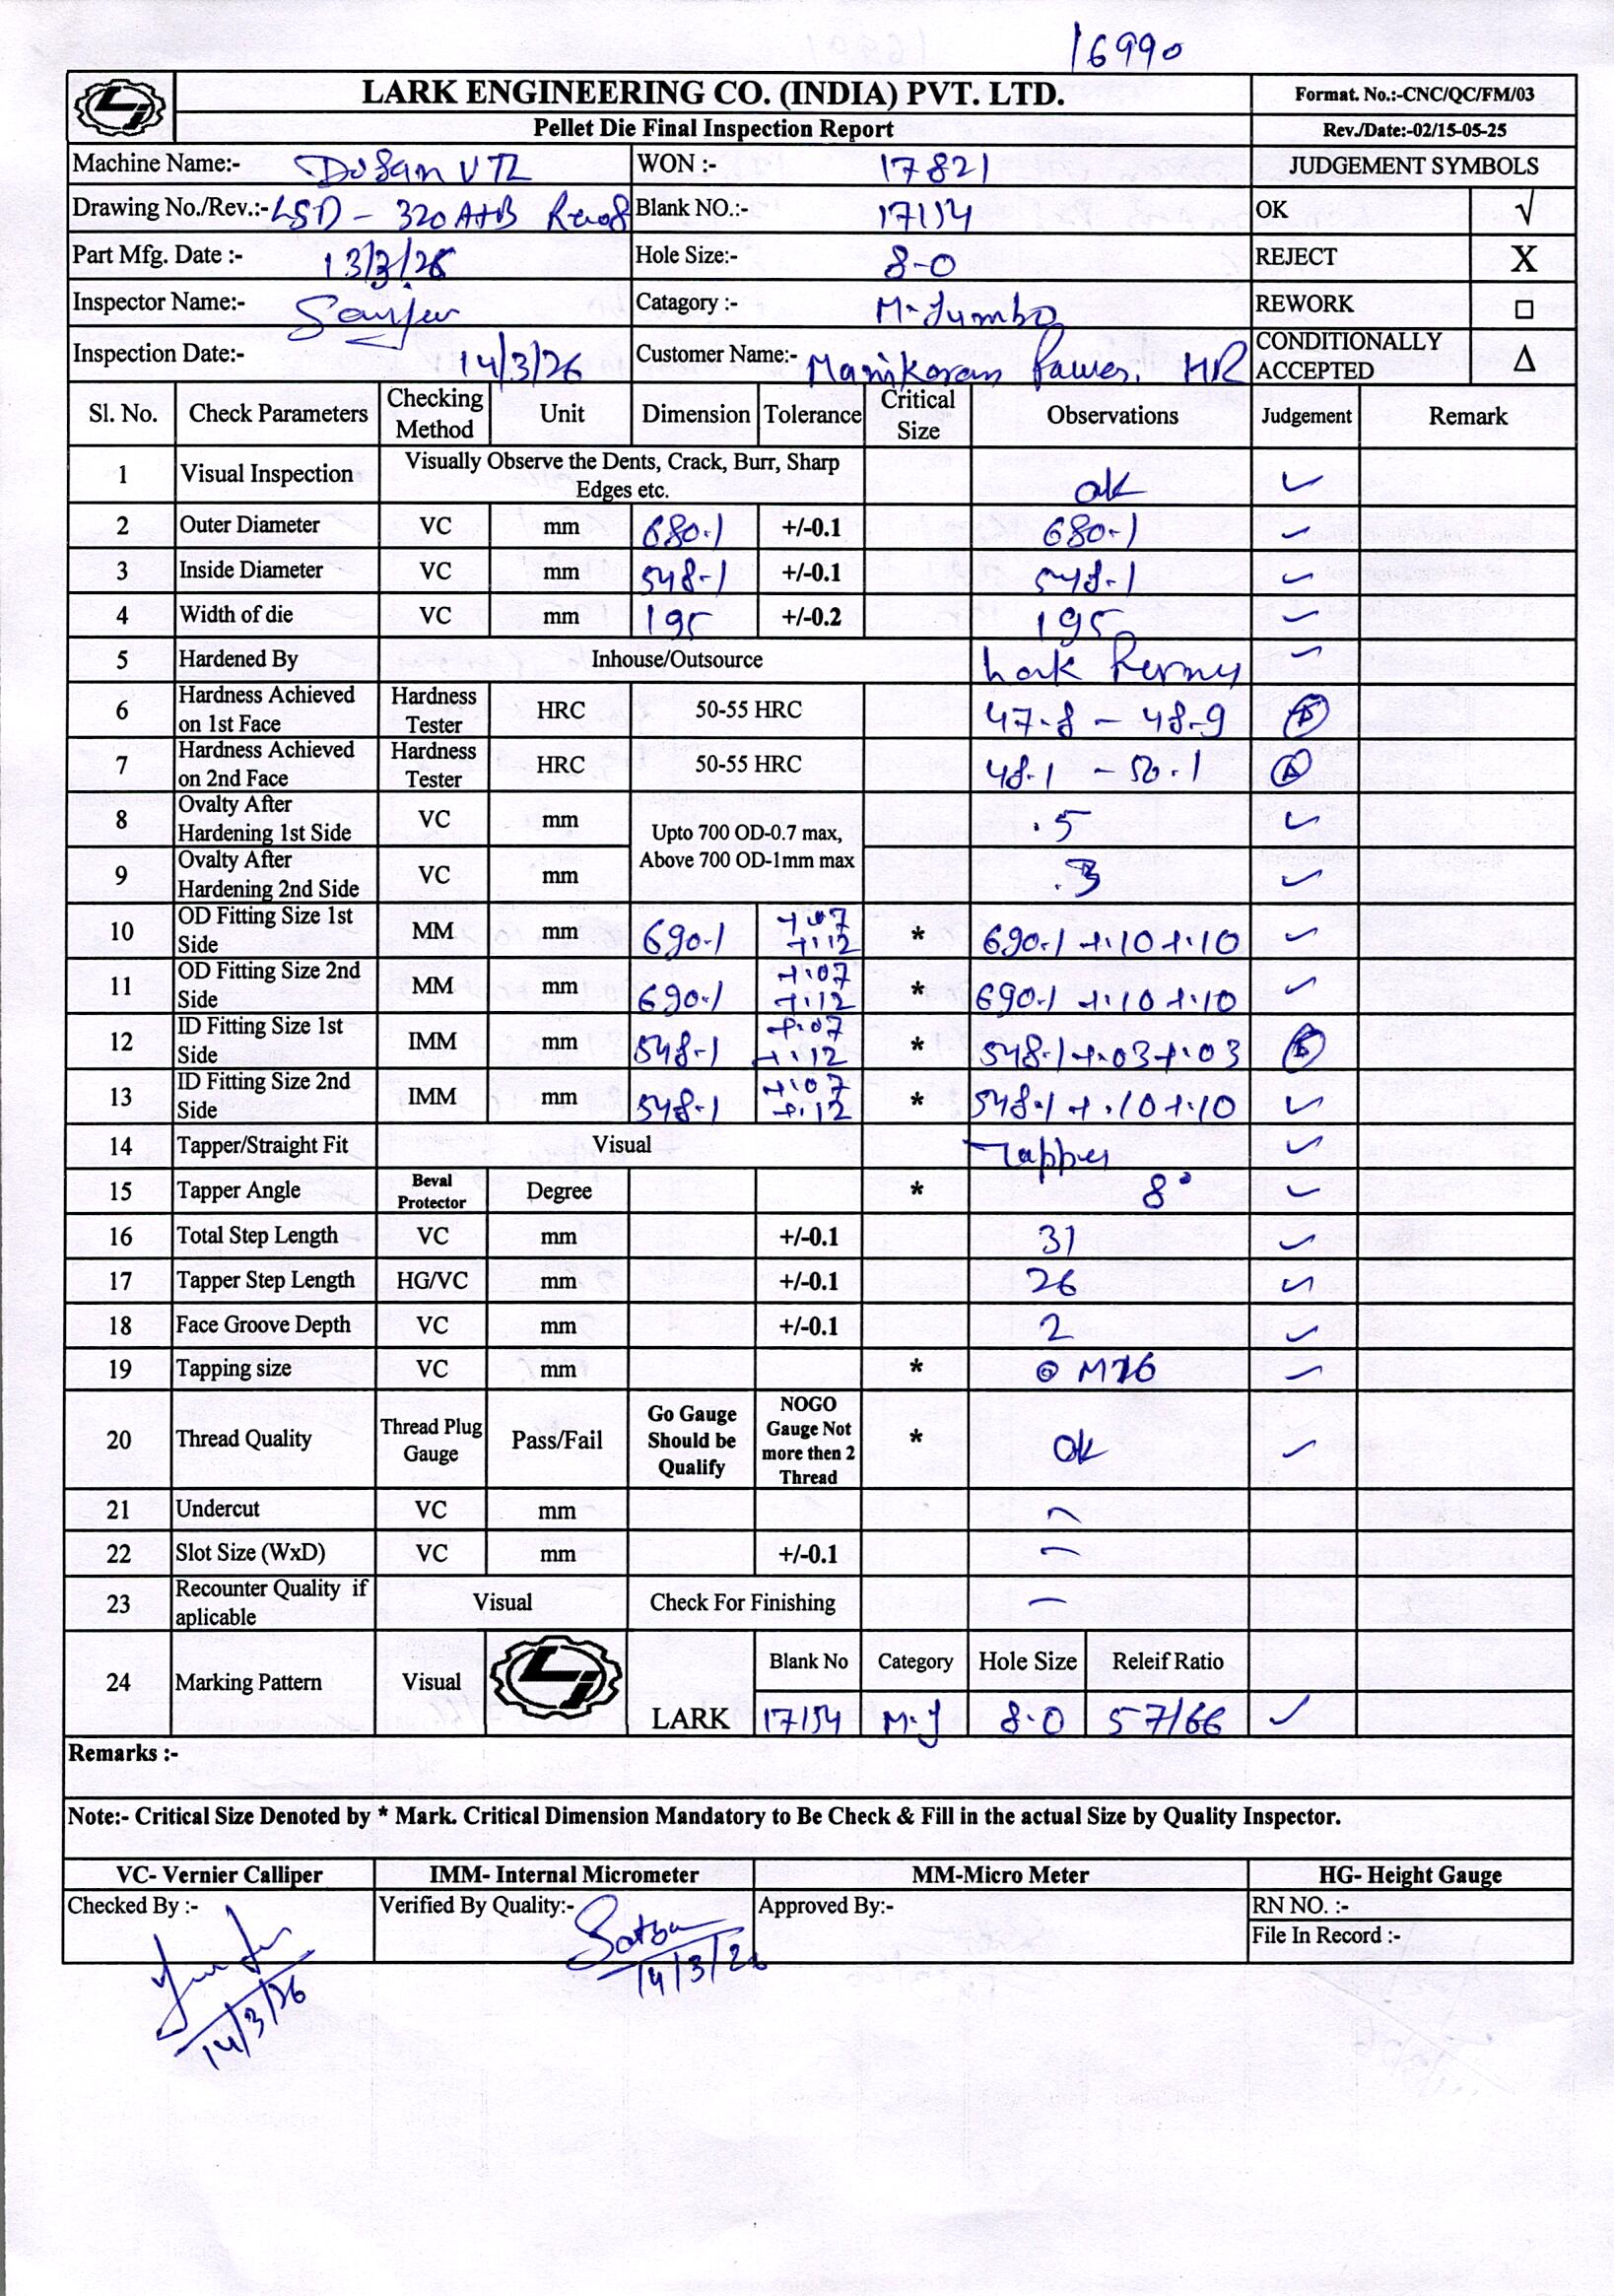 16990
LARK ENGINEERING CO. (INDIA) PVT. LTD. Format. No.:-CNC/QC/FM/03
Pellet Die Final Inspection Report Rev./Date:-02/15-05-25
Machine Name:- Dosan VTL WON :- 17821 JUDGEMENT SYMBOLS
Drawing No./Rev.:- LSD - 320 A+B Blank NO.:- 17154 OK √
Part Mfg. Date :- 13/3/26 Hole Size:- 8-0 REJECT X
Inspector Name:- Catagory :- M-Jumbo REWORK □
Inspection Date:- 14/3/26 Customer Name:- Manikaran Power, HR CONDITIONALLY ACCEPTED Δ
Sl. No. Check Parameters Checking Method Unit Dimension Tolerance Critical Size Observations Judgement Remark
1 Visual Inspection Visually Observe the Dents, Crack, Burr, Sharp Edges etc. ok ✓
2 Outer Diameter VC mm 680.1 +/-0.1 680.1 ✓
3 Inside Diameter VC mm 548-1 +/-0.1 548.1 ✓
4 Width of die VC mm 195 +/-0.2 195 ✓
5 Hardened By Inhouse/Outsource Lark ✓
6 Hardness Achieved on 1st Face Hardness Tester HRC 50-55 HRC 47.8 - 48.9
7 Hardness Achieved on 2nd Face Hardness Tester HRC 50-55 HRC 48.1 - 50.1
8 Ovalty After Hardening 1st Side VC mm Upto 700 OD-0.7 max, Above 700 OD-1mm max .5 ✓
9 Ovalty After Hardening 2nd Side VC mm .3 ✓
10 OD Fitting Size 1st Side MM mm 690.1 +.07 +.12 * 690.1 +.10 +.10 ✓
11 OD Fitting Size 2nd Side MM mm 690.1 +.07 +.12 * 690.1 +.10 +.10 ✓
12 ID Fitting Size 1st Side IMM mm 548-1 +.07 +.12 * 548.1 +.03 +.03
13 ID Fitting Size 2nd Side IMM mm 548-1 +.07 +.12 * 548.1 +.10 +.10 ✓
14 Tapper/Straight Fit Visual Tapper ✓
15 Tapper Angle Beval Protector Degree * 8° ✓
16 Total Step Length VC mm +/-0.1 31 ✓
17 Tapper Step Length HG/VC mm +/-0.1 26 ✓
18 Face Groove Depth VC mm +/-0.1 2 ✓
19 Tapping size VC mm * ✓
20 Thread Quality Thread Plug Gauge Pass/Fail Go Gauge Should be Qualify NOGO Gauge Not more then 2 Thread * ok ✓
21 Undercut VC mm -
22 Slot Size (WxD) VC mm +/-0.1 -
23 Recounter Quality if aplicable Visual Check For Finishing -
24 Marking Pattern Visual LARK Blank No Category Hole Size Releif Ratio
17154 M.J 8.0 57/66 ✓
Remarks :-
Note:- Critical Size Denoted by * Mark. Critical Dimension Mandatory to Be Check & Fill in the actual Size by Quality Inspector.
VC- Vernier Calliper IMM- Internal Micrometer MM-Micro Meter HG- Height Gauge
Checked By :- Verified By Quality:- Approved By:- RN NO. :-
File In Record :-
14/3/26 14/3/26